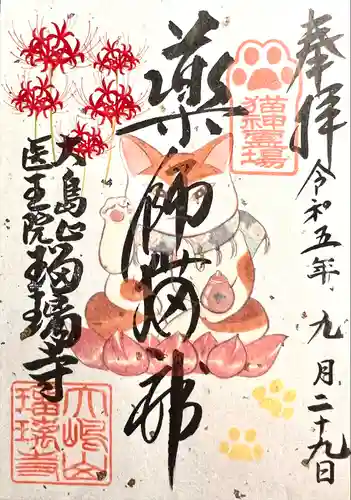 奉拝
令和五年 九月二十九日
猫神霊場
薬師猫神
大島山
医王院
瑠璃寺
大嶋山
瑠璃寺